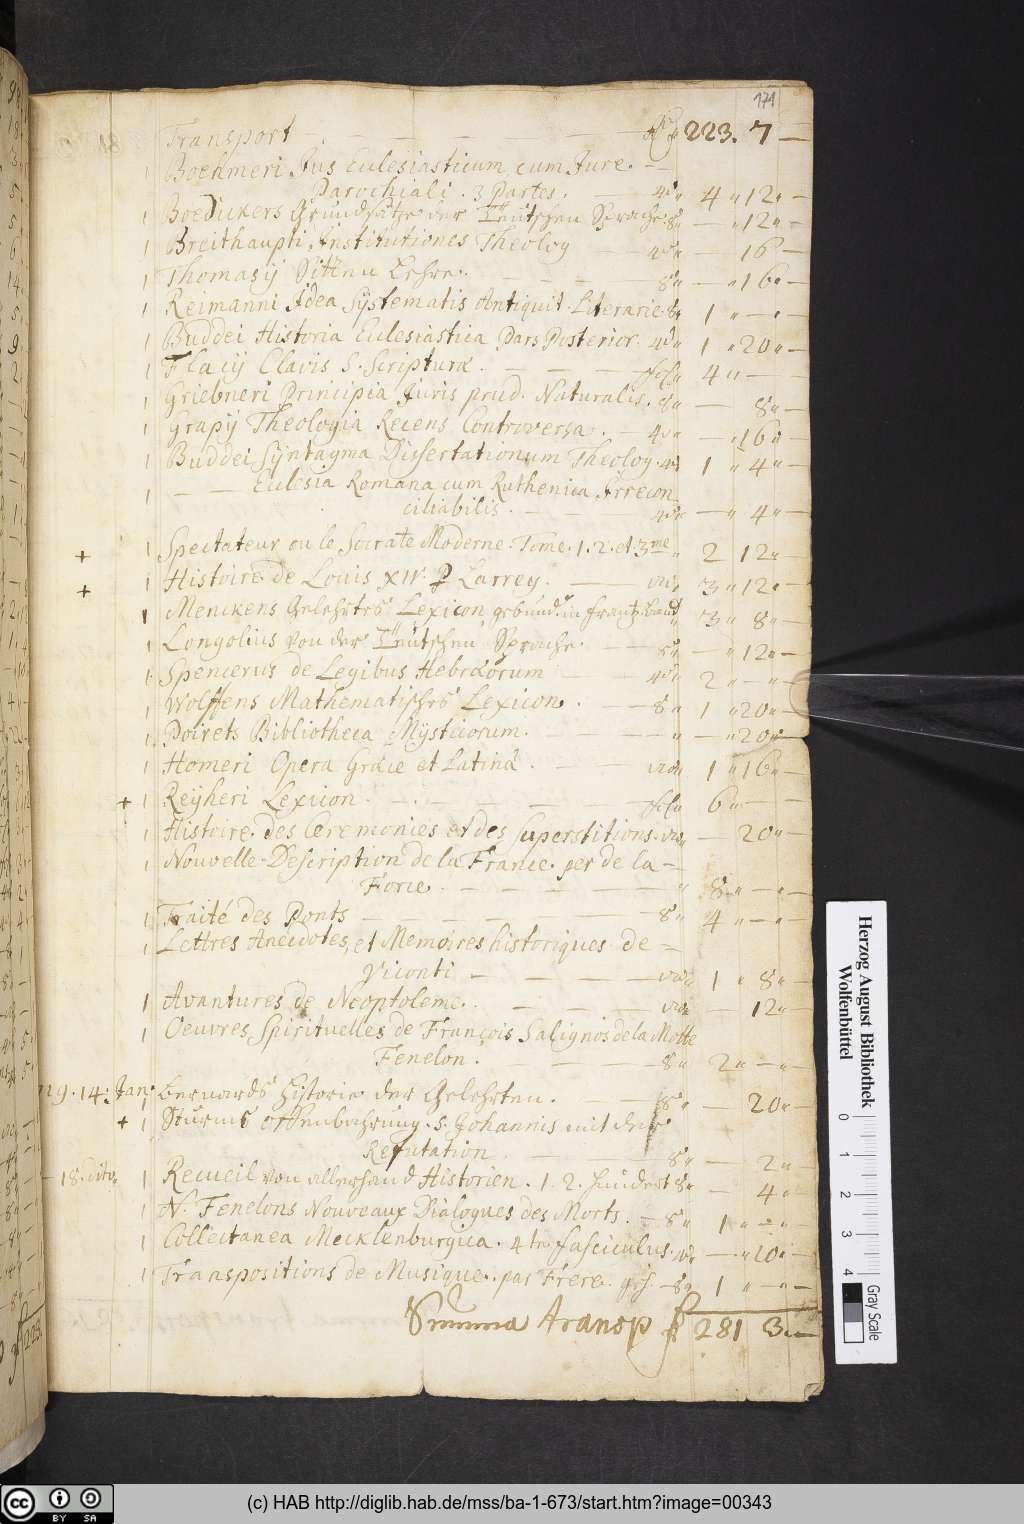 171
Transport – – – – – 223. 7 –
1 Boehmeri Jus Ecclesiasticum cum Jure. –
Parochiali. 3 Partes. – 4to 4 " 12 " –
1 Boedickers Grundsätze der Teutschen Sprache 8 " – " 12 " –
1 Breithaupti Institutiones Theolog – 4to – 16 –
1 Thomasij Sitten Lehre. – – – 8 " – " 16 " –
1 Reimanni Idea Systematis Antiquit. Literarie. 8 " 1 " – " –
1 Buddei Historia Ecclesiastica Pars Posterior. 4to 1 " 20 " –
1 Flacij Clavis S. Scripturæ. – – – fol. 4 " – –
1 Griebneri Principia Juris prud. Naturalis. 8 " – 8 " –
1 Grapij Theologia Recens Controversa. – 4to – " 16 " –
1 Buddei Syntagma Dissertationum Theolog. 4to 1 " 4 " –
1 – – Eclesia Romana cum Ruthenica Irrecon
ciliabilis. – – – 4to – " 4 " –
+ 1 Spectateur ou le Socrate Moderne. Tome. 1. 2. et 3me " 2 12 "
+ 1 Histoire de Louis XIV. p Larrey. – 3 " 12 " –
1 Menckens Gelehrtes Lexicon, gebund. in frantz. Band " 3 " 8 " –
1 Longolius von der Teutschen Sprache. – – 8 " – " 12 " –
1 Spencerus de Legibus Hebræorum – – 4to 2 " – " –
1 Wolffens Mathematisches Lexicon. – – 8 " 1 " 20 " –
1 Poirets Bibliotheca Mysticorum. – – – " – " 20 " –
1 Homeri Opera Græce et Latinæ. – – 1 " 16 " –
+ 1 Reyheri Lexicon. – – – – – fol. 6 " – –
1 Histoire des Ceremonies et des Superstitions. – 20 " –
1 Nouvelle Description de la France. per de la –
Force. – – – – – " 8 " – " –
1 Traité des Ponts – – – – – 8 " 4 " – " –
1 Lettres Anecdotes, et Memoires historiques de –
Viconti – – – – 1 " 8 " –
1 Avantures de Neoptoleme. – – – – 12 " –
1 Oeuvres Spirituelles de François Salignos de la Motte
Fenelon. – – 8 " 2 " – " –
14. Jan. 1 Bernards Historie der Gelehrten. – – 8 " – 20 " –
+ 1 Sturms Offenbahrung S. Johannis mit der
Refutation. – – – 8 " – 2 " –
– 18. dito. 1 Recueil von allerhand Historien. 1. 2. hundert 8 " – 4 "
1 N. Fenelons Nouveaux Dialogues des Morts. – 8 " 1 " – " –
1 Collectanea Mecklenburgica. 4tr fasciculus. – " 10 " –
1 Transpositions de Musique. par Frere. – 8 " 1 " – " –
Summa Transp 281 3 " –
Herzog August Bibliothek
Wolfenbüttel
0 1 2 3 4
Gray Scale
CC BY SA
(c) HAB http://diglib.hab.de/mss/ba-1-673/start.htm?image=00343